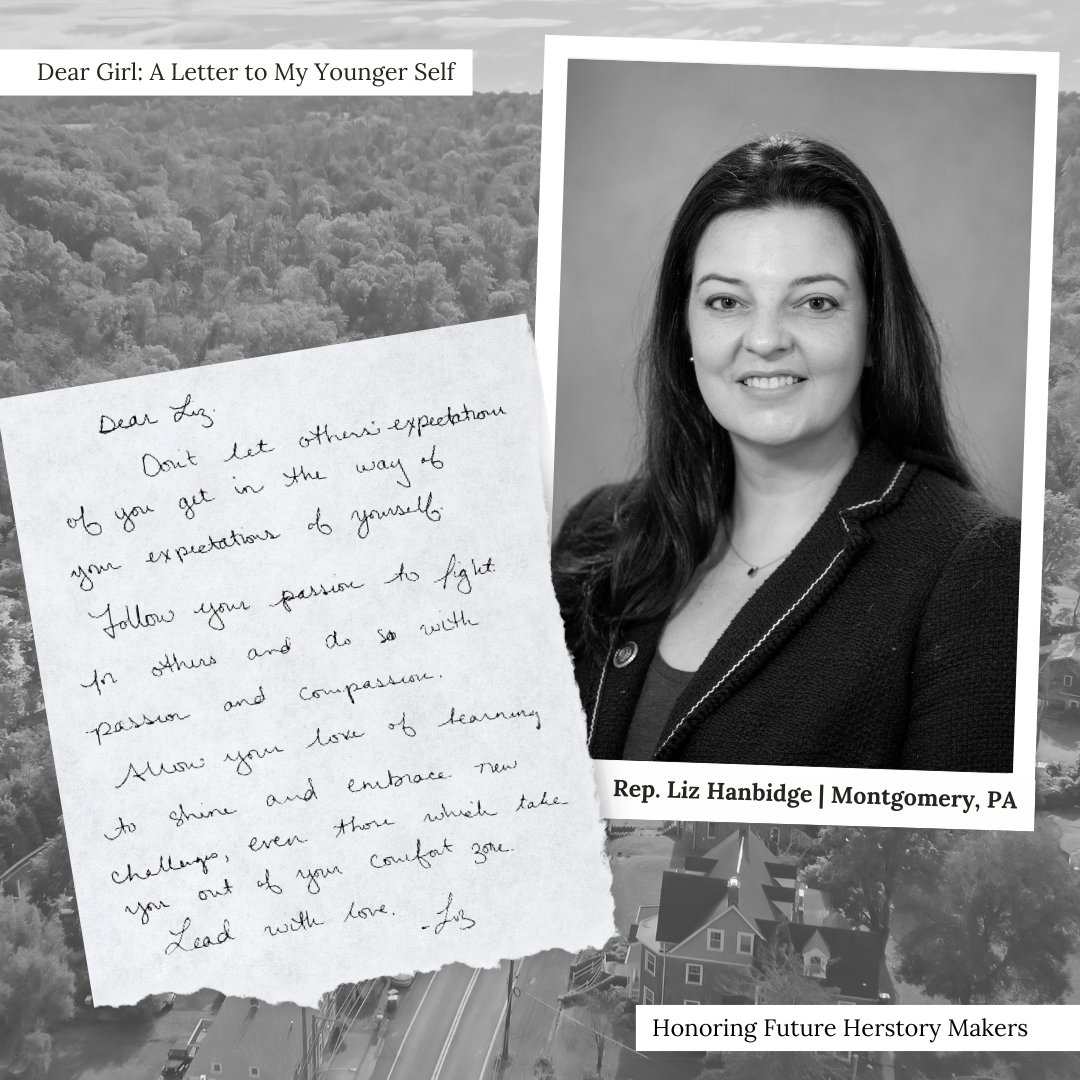 Dear Girl: A Letter to My Younger Self
Dear Liz.
Don't let others' expectations
of you get in the way of
your expectations of yourself.
Follow your passion to fight
for others and do so with
passion and compassion.
Allow your love of learning
to shine and embrace new
challenges, even those which take
you out of your comfort zone.
Lead with love. -Liz
Rep. Liz Hanbidge | Montgomery, PA
Honoring Future Herstory Makers